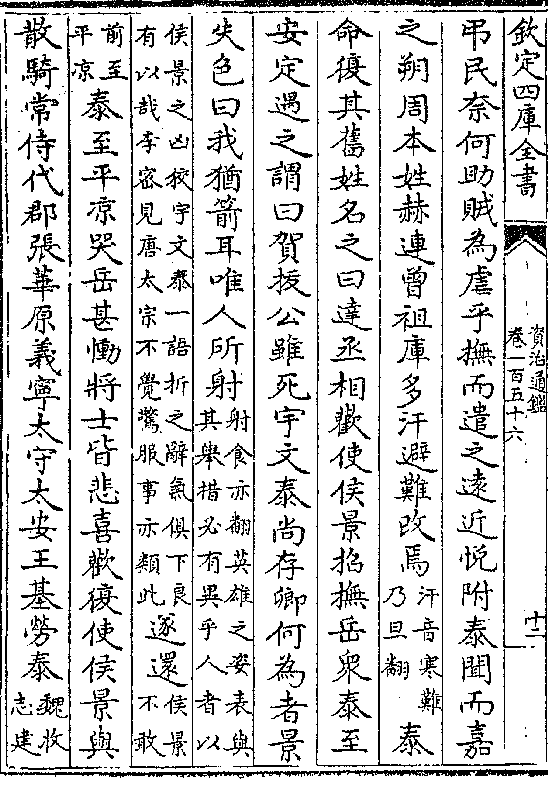 欽定四庫全書
資治通鑑
卷一百五十六
十二
弔民奈何助賊為虐乎撫而遣之逺近悦附泰聞而嘉
之朔周本姓赫連曾祖庫多汗避難改焉
汗音寒難
乃旦翻
泰
命復其舊姓名之曰達丞相歡使侯景招撫岳衆泰至
安定遇之謂曰賀拔公雖死宇文泰尚存卿何為者景
失色曰我猶箭耳唯人所射
射食亦翻英雄之姿表與
其舉措必有異乎人者以
侯景之凶狡宇文泰一語折之辭氣俱下良
有以哉李宻見唐太宗不覺驚服事亦類此
遂還
侯景
不敢
前至
平凉
泰至平凉哭岳甚慟將士皆悲喜歡復使侯景與
散騎常侍代郡張華原義寧太守太安王基勞泰
魏收
志建